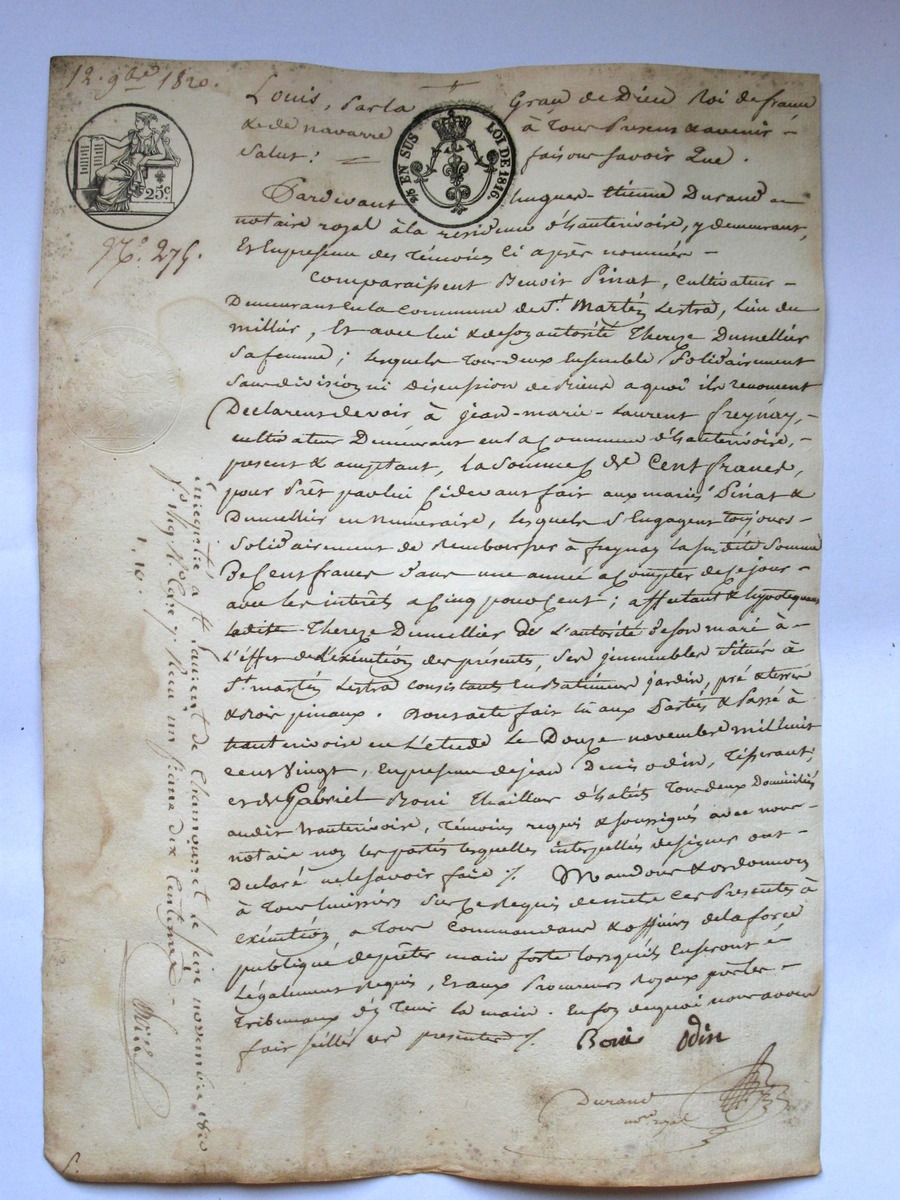 12. 9bre 1820.
Louis, Par la Grace de Dieu Roi de france
& de navarre à Tous Presens & avenir –
Salut: faisons Savoir Que.
25c.
2/5 EN SUS LOI DE 1816.
Pardevant hugues-Etienne Durand –
notaire royal à la residence d'hauterivoire, y demeurant,
Et En presence des Témoins Ci après nommés –
No. 275.
Comparaissent Benoit Pinat, Cultivateur –
Demeurant En la Commune de St. Martin Lestra, lieu du
millier, Et avec lui & de son autorité Thereze Dumellier
Sa femme; lesquels Tous deux Ensemble Solidairement
Sans division ni discussion de biens a quoi ils renoncent
Déclarent devoir à jean-marie-Laurent freynay, –
cultivateur Demeurant en la Commune d'hauterivoire, –
présent & acceptant, la Somme de Cent francs,
pour Prêt par lui Cidevant fait aux mariés Pinat &
Dumellier en numéraire, lesquels S'Engagent toujours –
Solidairement de Rembourser à freynay la susdite Somme
de Cent francs dans une année a Compter de Ce jour –
avec les intérêts a Cinq pour Cent; affectant & hypotequant
ladite Thereze Dumellier de l'autorité de son mari à –
L'effet de l'exécution des présentes, Ses immeubles Situés à
St. martin Lestra Consistants En Batiment jardin, pré & terre
& bois pinaux. Dont acte fait lu aux Parties & Passé à
hauterivoire en L'etude Le Douze novembre mil huit
cent Vingt, En presence de jean Denis odin, Tisserant;
et de Gabriel Boni Thailleur d'habits Tous deux Domiciliés
audit hauterivoire, Témoins requis & soussignés avec nous –
notaire non les parties lesquelles interpellées de signer ont –
Declaré ne le savoir faire ⁒. Mandons & ordonnons
à Tous huissiers Sur Ce Requis de mettre Ces Présentes à
exécution a Tous Commandans & officiers de la force
publique de prêter main forte lorsqu'ils En seront –
Légalement Requis, Et aux Procureurs Royaux près les –
Tribunaux d'y Tenir la main. En foi de quoi nous avons
fait sceller ces presentes ⁒. Boni Odin
Durand
nore royal
Enregistré a St Laurent de Chamousset le seize novembre 1820
Reçu un franc dix Centimes –
1. 10.